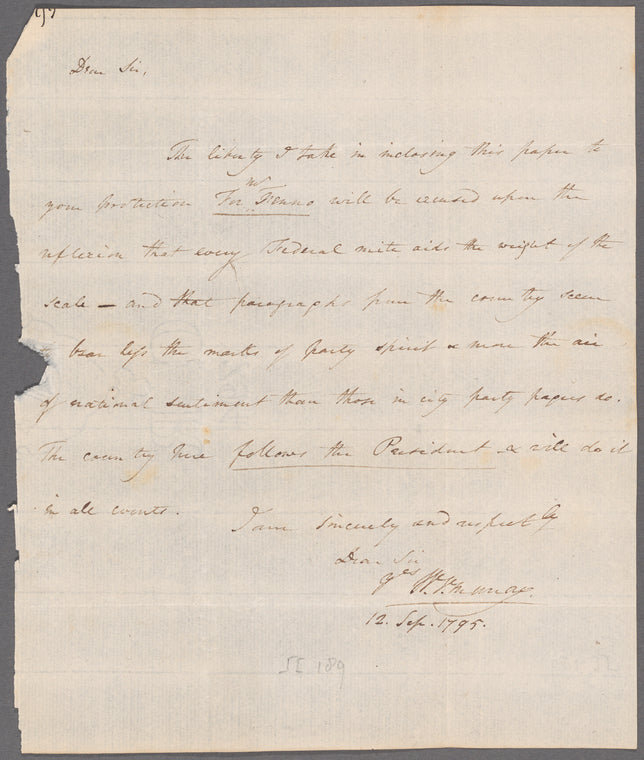 Dear Sir,
The liberty I take in inclosing this paper to
your protection For Mr Fenno will be excused upon the
reflexion that every Federal mite aids the weight of the
scale — and that paragraphs from the country seem
bear less the marks of party spirit & more the air
of national sentiment than those in city party papers do.
The country here follows the President & will do it
in all events.
I am sincerely and respectly
Dear Sir
yrs W. V. Murray.
12. Sep. 1795.
SE 189